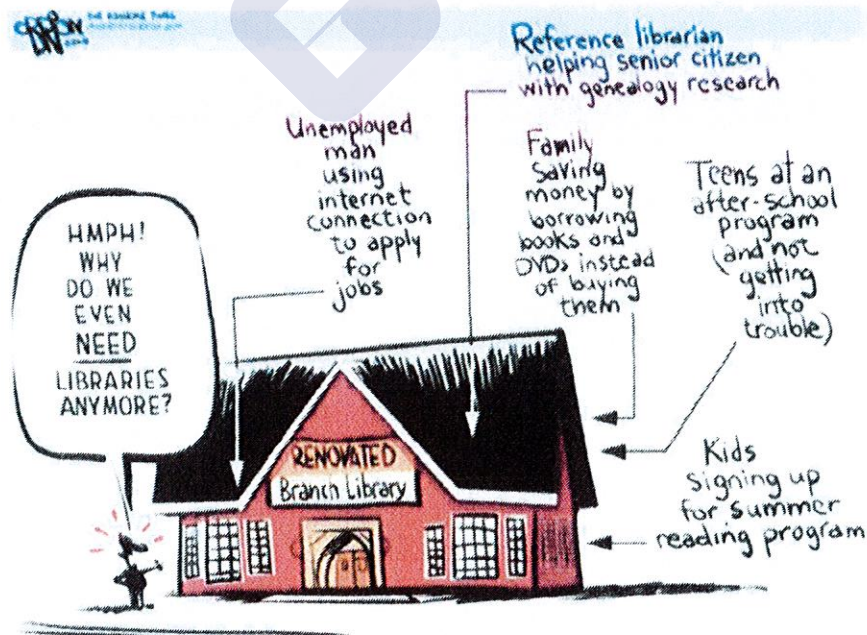 HMPH!
WHY
DO WE
EVEN
NEED
LIBRARIES
ANYMORE?
Unemployed
man
using
internet
connection
to apply
for
jobs
Reference librarian
helping senior citizen
with genealogy research
Family
saving
money by
borrowing
books and
DVDs instead
of buying
them
Teens at an
after-school
program
(and not
getting
into
trouble)
Kids
signing up
for summer
reading program
RENOVATED
Branch Library